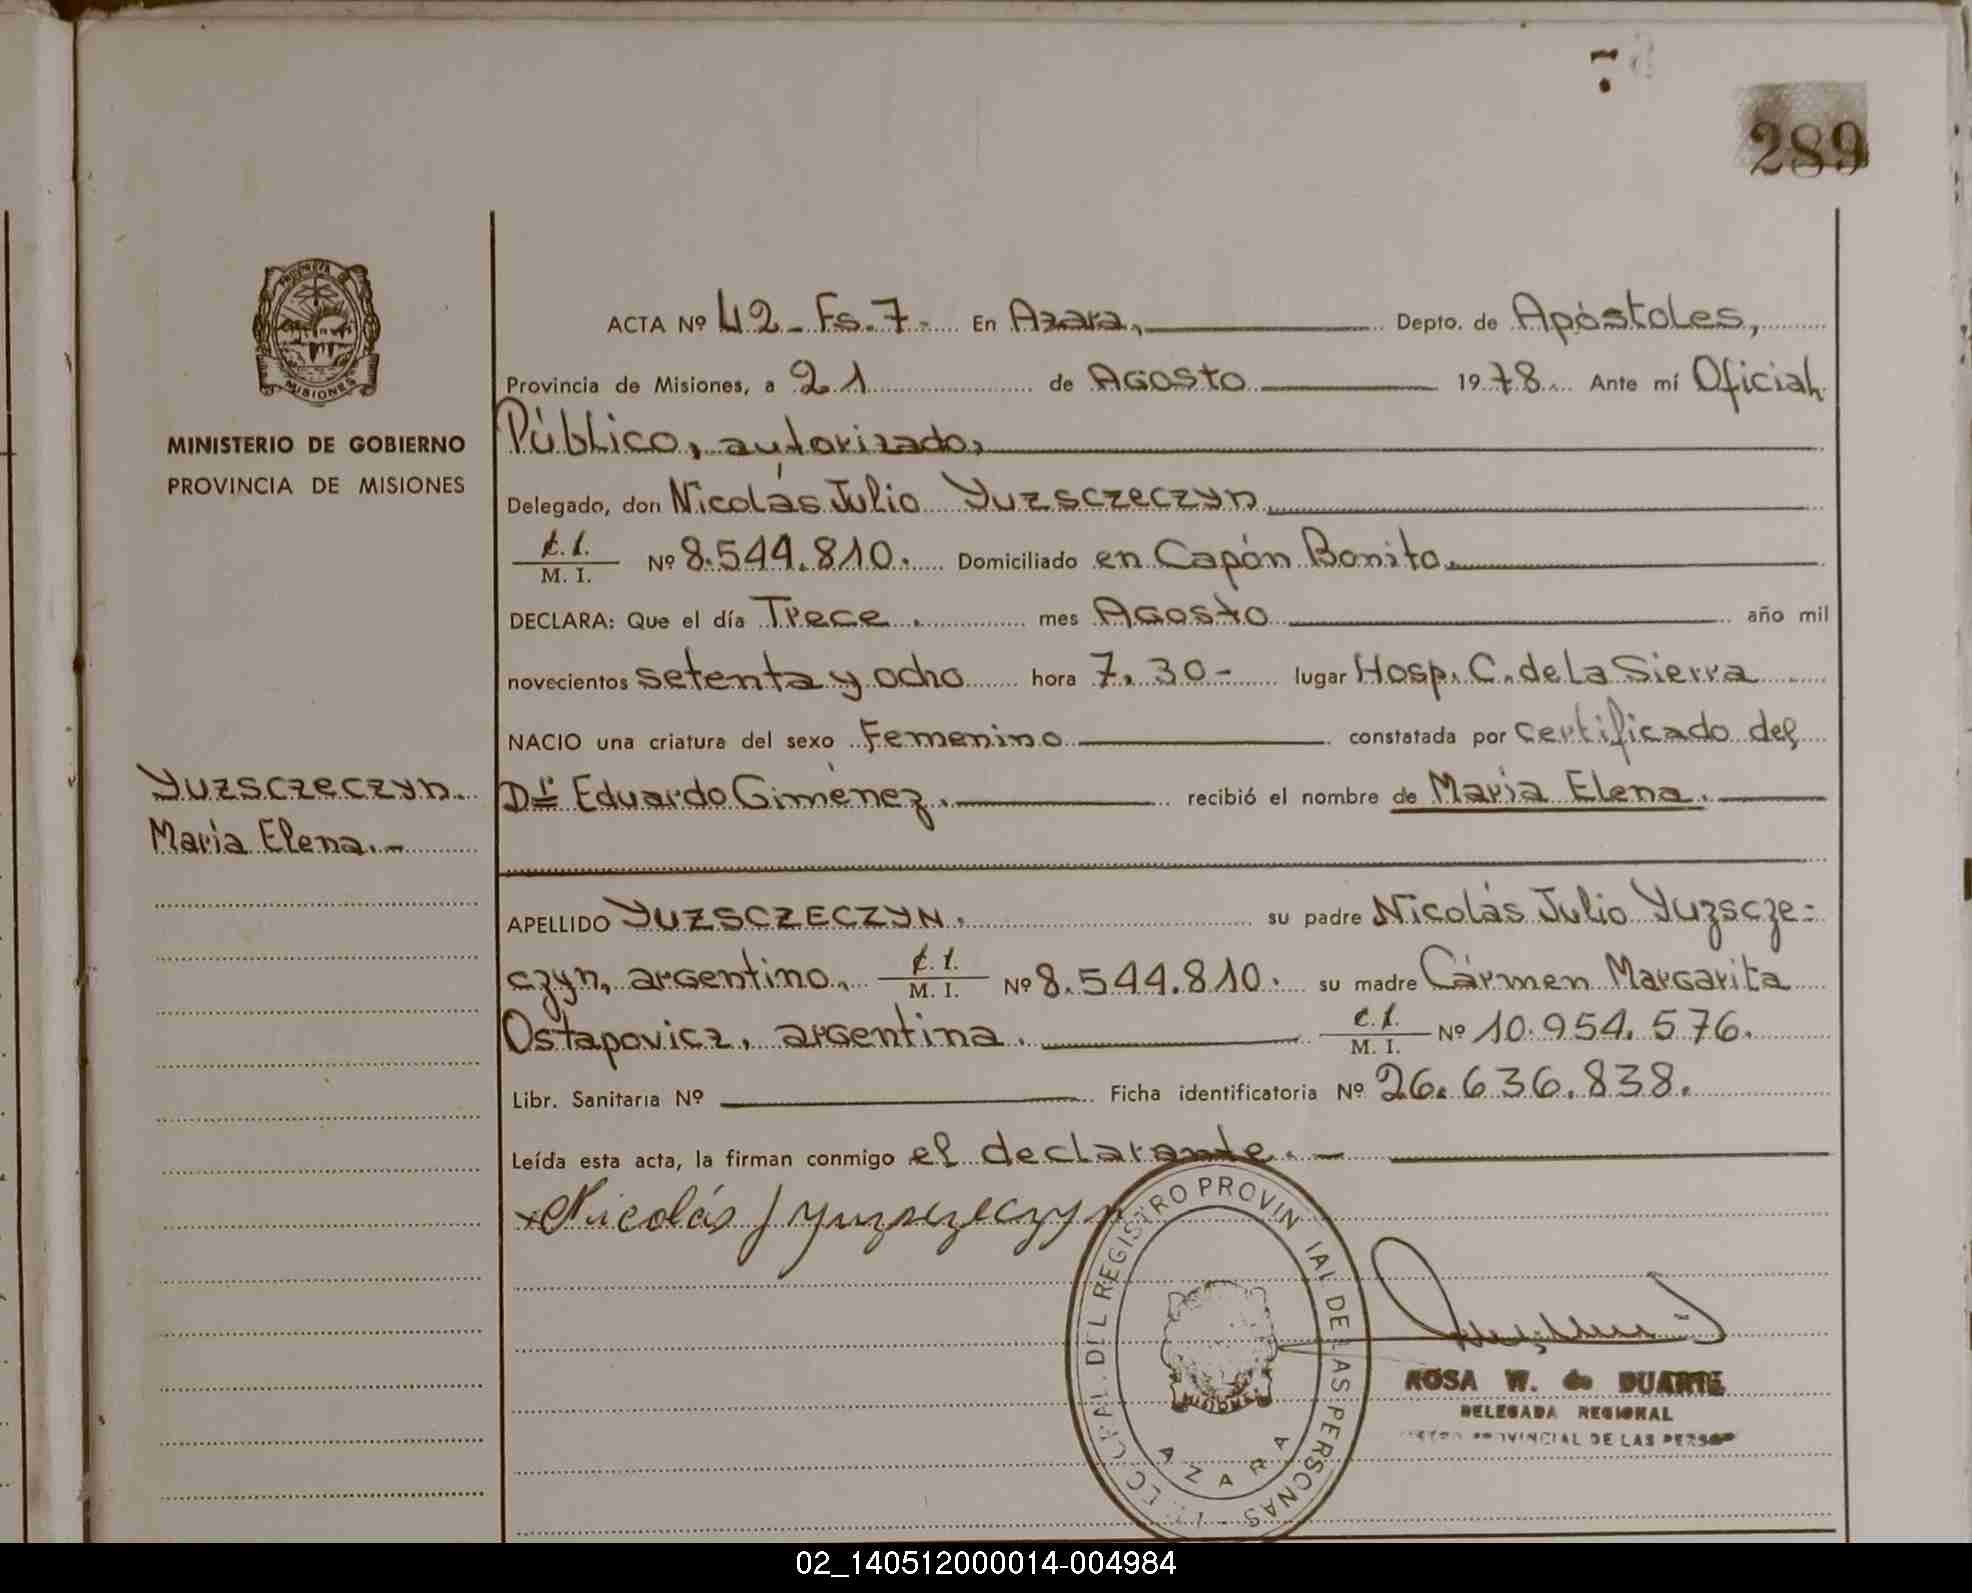 7
289
ACTA Nº 42 - Fs. 7 - En Azara, Depto. de Apóstoles,
Provincia de Misiones, a 21 de Agosto 1978 Ante mí Oficial
MINISTERIO DE GOBIERNO
PROVINCIA DE MISIONES
Público, autorizado,
Delegado, don Nicolás Julio Yuzsczeczyn
C. I. / M. I. Nº 8.544.810. Domiciliado en Capón Bonito.
DECLARA: Que el día Trece. mes Agosto año mil
novecientos setenta y ocho hora 7.30- lugar Hosp. C. de la Sierra
NACIO una criatura del sexo Femenino constatada por certificado del
Yuzsczeczyn.
María Elena.-
Dr. Eduardo Giménez. recibió el nombre de María Elena.
APELLIDO YUZSCZECZYN. su padre Nicolás Julio Yuzscze=
czyn, argentino, C. I. / M. I. Nº 8.544.810. su madre Cármen Margarita
Ostapovicz, argentina. C. I. / M. I. Nº 10.954.576.
Libr. Sanitaria Nº Ficha identificatoria Nº 26.636.838.
Leída esta acta, la firman conmigo el declarante. -
Nicolás J Yuzsczeczyn
DEL REGISTRO PROVINCIAL DE LAS PERSONAS
MISIONES
AZARA
ROSA W. de DUARTE
DELEGADA REGIONAL
PROVINCIAL DE LAS PERSON
02_140512000014-004984